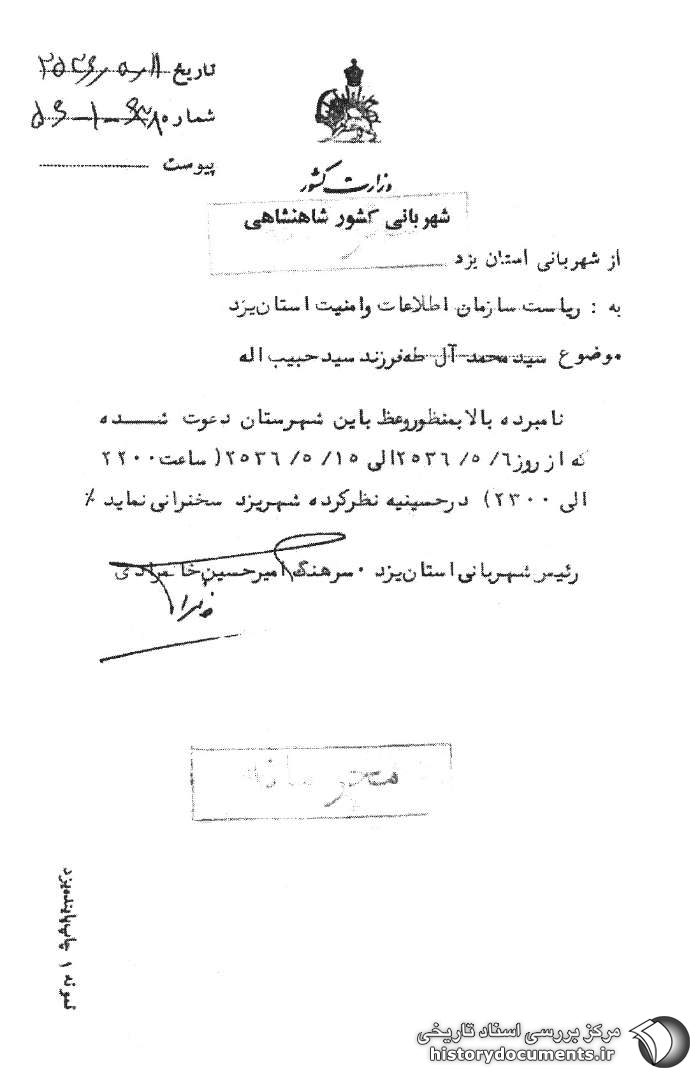 تاریخ ۲۵۳۶٫۵٫۱۱
شماره
پیوست
وزارت کشور
شهربانی کشور شاهنشاهی
از شهربانی استان یزد
به : ریاست سازمان اطلاعات وامنیت استان یزد
موضوع سید محمد آل طه فرزند سید حبیب اله
نامبرده بالا بمنظور وعظ باین شهرستان دعوت شده
که از روز ۲۵۳۶/۵/۶ الی ۲۵۳۶/۵/۱۵ ( ساعت ۲۲۰۰
الی ۲۳۰۰ ) در حسینیه نظر کرده شهر یزد سخنرانی نماید ٪
رئیس شهربانی استان یزد ۰ سرهنگ امیر حسین خا مرادی
محرمانه
نمونه ۱ چاپ پاینده یزد
مرکز بررسی اسناد تاریخی
historydocuments.ir